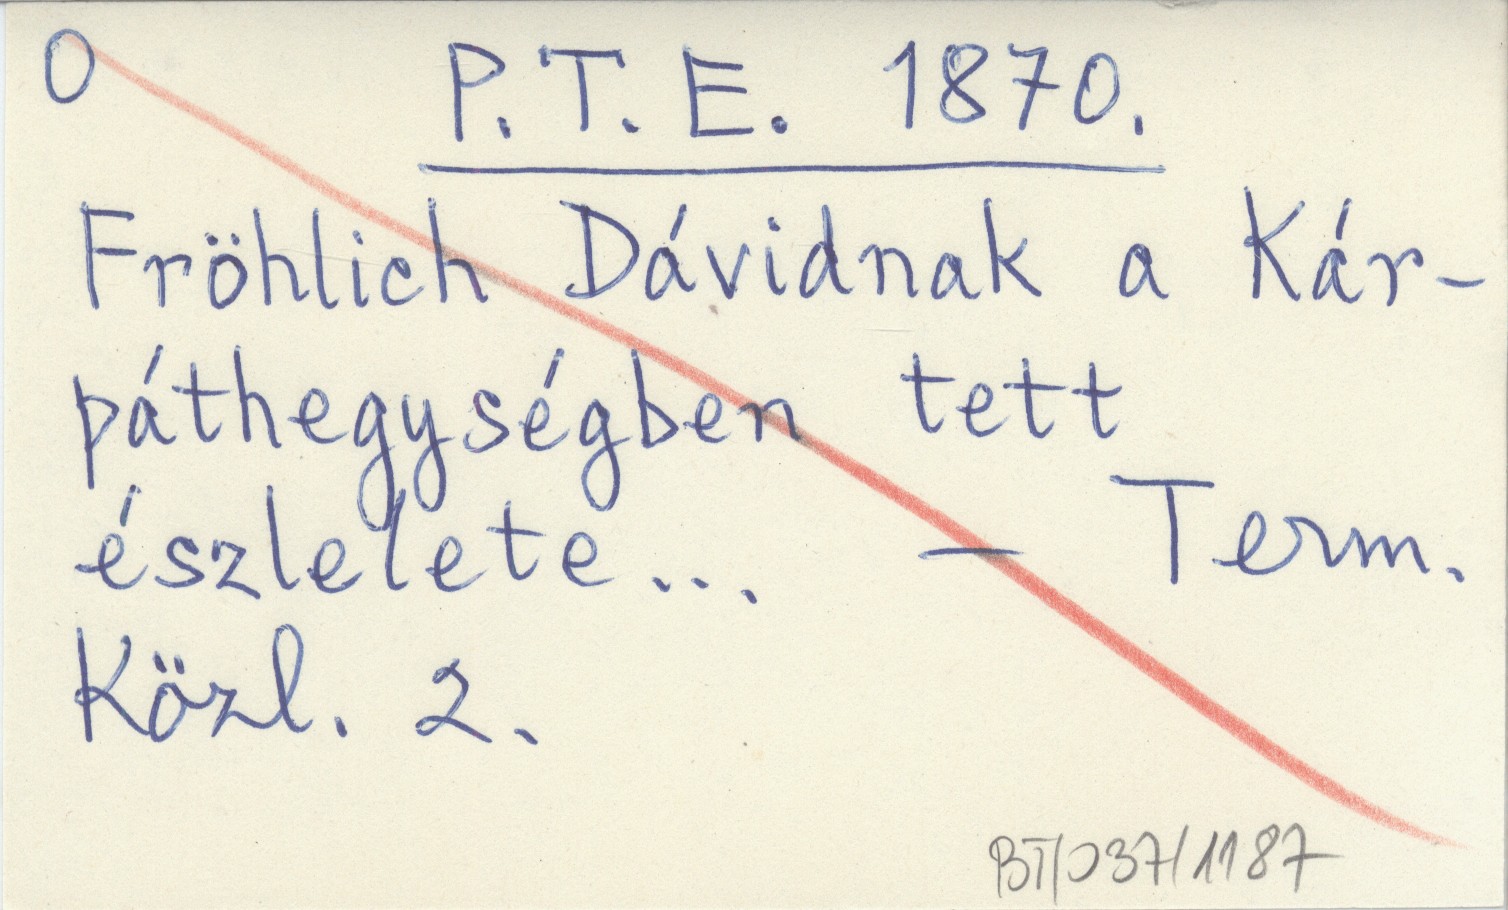 0 P.T.E. 1870.
Fröhlich Dávidnak a Kár-
páthegységben tett
észlelete... - Term.
Közl. 2.
BT/037/1187